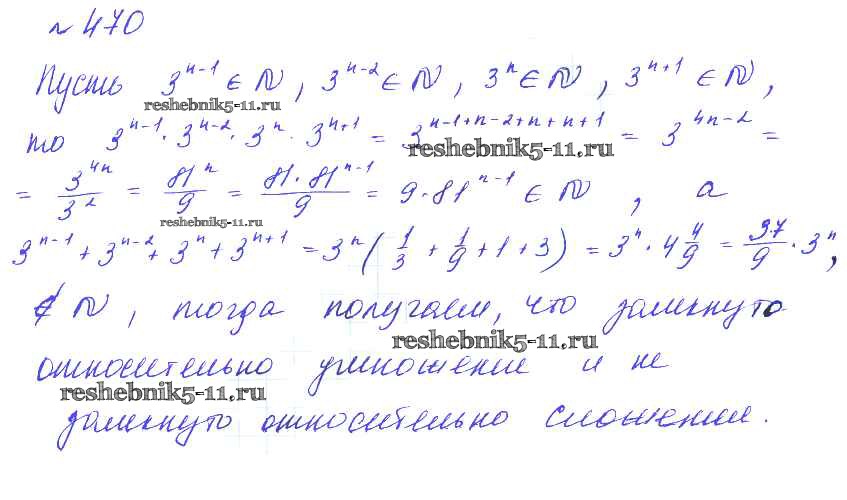 № 470
Пусть 3^{n-1} ∈ N, 3^{n-2} ∈ N, 3^n ∈ N, 3^{n+1} ∈ N,
reshebnik5-11.ru
то 3^{n-1} · 3^{n-2} · 3^n · 3^{n+1} = 3^{n-1+n-2+n+n+1} = 3^{4n-2} =
reshebnik5-11.ru
= 3^{4n}/3^2 = 81^n/9 = 81·81^{n-1}/9 = 9·81^{n-1} ∈ N, а
reshebnik5-11.ru
3^{n-1} + 3^{n-2} + 3^n + 3^{n+1} = 3^n (1/3 + 1/9 + 1 + 3) = 3^n · 4 4/9 = 37/9 · 3^n,
∉ N, тогда получаем, что замкнуто
reshebnik5-11.ru
относительно умножение и не
reshebnik5-11.ru
замкнуто относительно сложения.